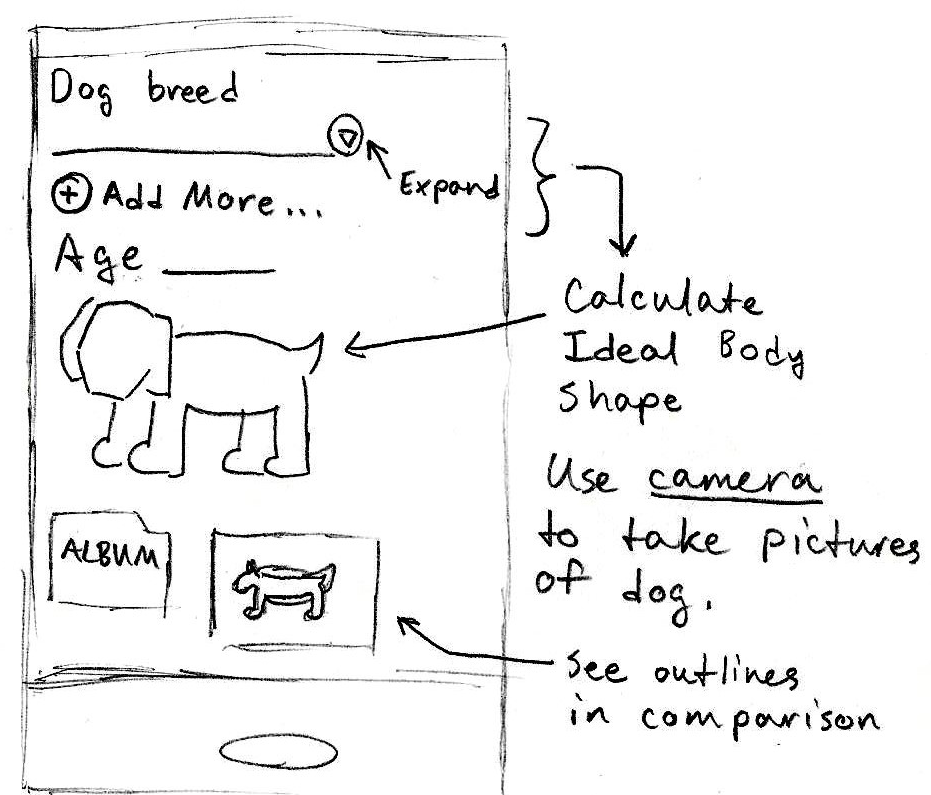 Dog breed
Expand
+ Add More...
Age
Calculate
Ideal Body
Shape
Use camera
to take pictures
of dog.
ALBUM
See outlines
in comparison